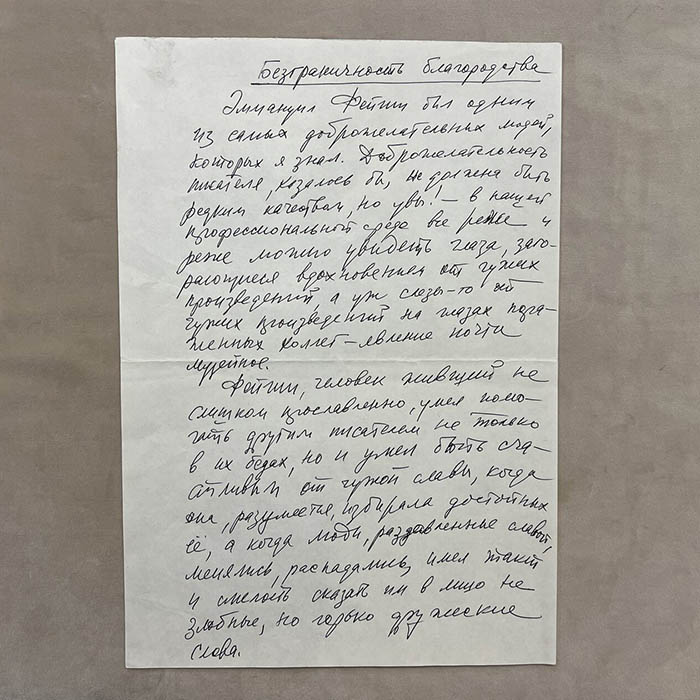 Безграничность благородства
Эммануил Фейгин был одним
из самых доброжелательных людей,
которых я знал. Доброжелательность
писателя, казалось бы, не должна быть
редким качеством, но увы! – в нашей
профессиональной среде все реже и
реже можно увидеть глаза, заго-
рающиеся вдохновением от чужих
произведений, а уж слезы-то от
чужих произведений на глазах
коллег – явление почти
музейное.
Фейгин, человек живший не
слишком прославленно, умел помо-
гать другим писателем не только
в их бедах, но и умел быть сча-
стливым от чужой славы, когда
она, разумеется, избирала достойных
её, а когда люди, раздавленные славой,
менялись, распадались, имел такт
и смелость сказать им в лицо не
злобные, но горько дружеские
слова.